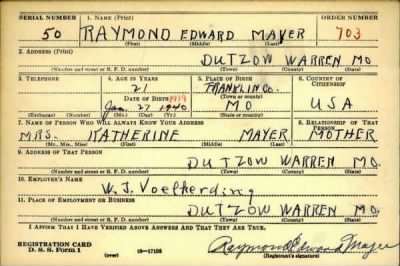 SERIAL NUMBER 1. NAME (Print) ORDER NUMBER
50 RAYMOND EDWARD MAYER 703
(First) (Middle) (Last)
2. ADDRESS (Print)
DUTZOW WARREN MO
(Number and street or R. F. D. number) (Town) (County) (State)
3. TELEPHONE 4. AGE IN YEARS 5. PLACE OF BIRTH 6. COUNTRY OF CITIZENSHIP
21 FRANKLIN CO.
DATE OF BIRTH 1919 (Town or county)
Jan 27 1940 MO USA
(Exchange) (Number) (Mo.) (Day) (Yr.) (State or country)
7. NAME OF PERSON WHO WILL ALWAYS KNOW YOUR ADDRESS 8. RELATIONSHIP OF THAT PERSON
MRS. KATHERINE MAYER MOTHER
(Mr., Mrs., Miss) (First) (Middle) (Last)
9. ADDRESS OF THAT PERSON
DUTZOW WARREN MO.
(Number and street or R. F. D. number) (Town) (County) (State)
10. EMPLOYER'S NAME
W. J. Voelkerding
11. PLACE OF EMPLOYMENT OR BUSINESS
DUTZOW WARREN MO
(Number and street or R. F. D. number) (Town) (County) (State)
I AFFIRM THAT I HAVE VERIFIED ABOVE ANSWERS AND THAT THEY ARE TRUE.
REGISTRATION CARD
D. S. S. Form 1 (over) 16-17105 Raymond Edward Mayer
(Registrant's signature)